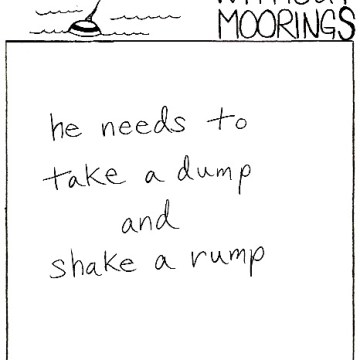 MOORINGS
he needs to
take a dump
and
shake a rump